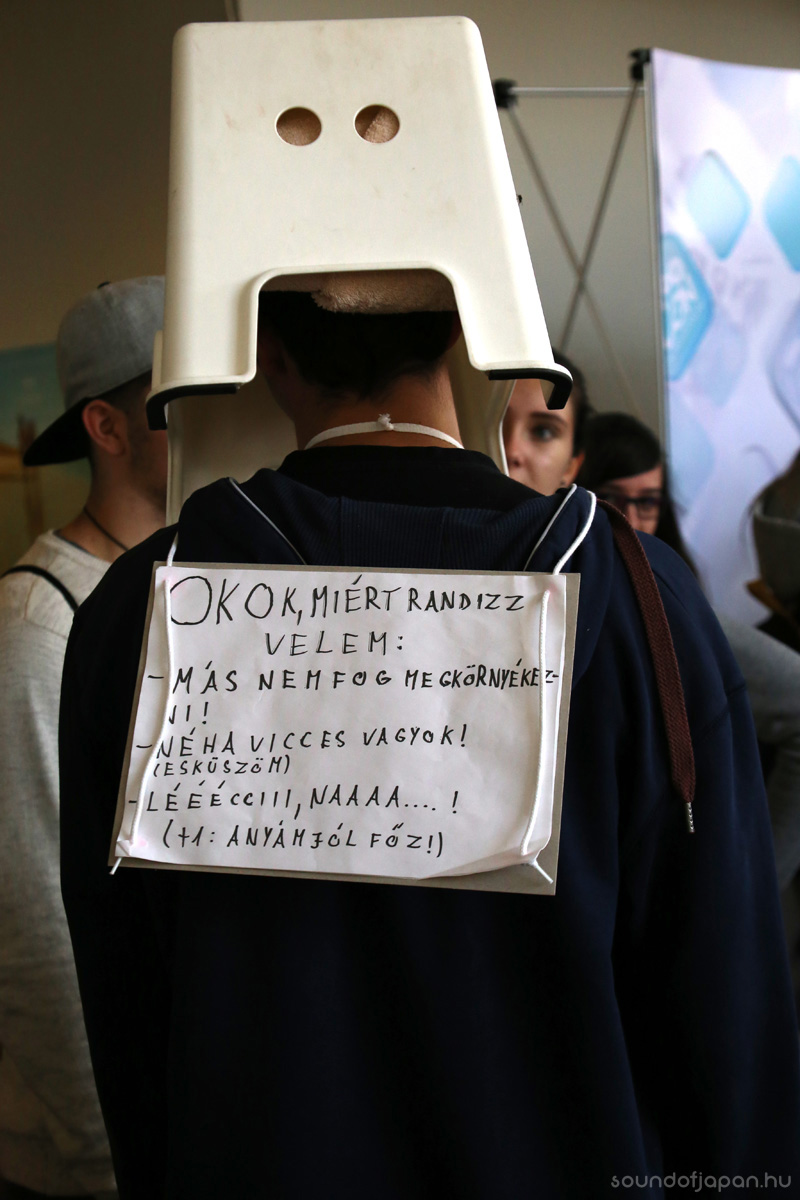 OKOK, MIÉRT RANDIZZ
VELEM:
- MÁS NEM FOG MEGKÖRNYÉKEZ-
NI!
- NÉHA VICCES VAGYOK!
(ESKÜSZÖM)
- LÉÉÉCCIII, NAAAA....!
(+1: ANYÁM JÓL FŐZ!)
soundofjapan.hu